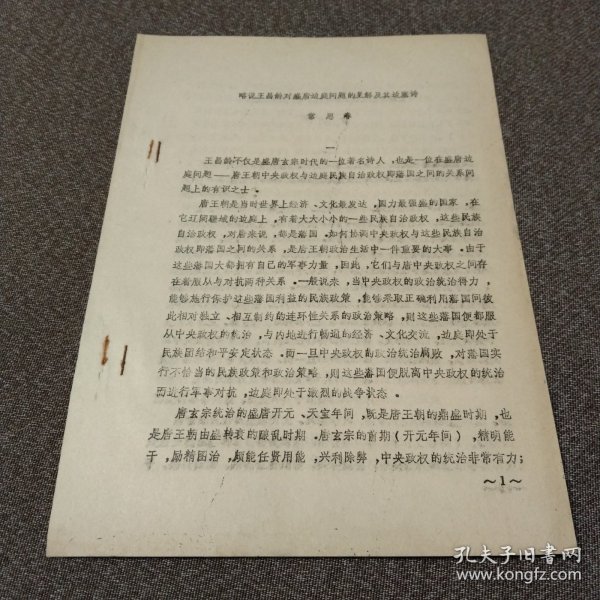 略说王昌龄对盛唐边庭问题的见解及其边塞诗
常思春
一
王昌龄不仅是盛唐玄宗时代的一位著名诗人，也是一位在盛唐边
庭问题——唐王朝中央政权与边庭民族自治政权即藩国之间的关系问
题上的有识之士。
唐王朝是当时世界上经济、文化最发达，国力最强盛的国家，在
它辽阔疆域的边庭上，有着大大小小的一些民族自治政权，这些民族
自治政权，对唐来说，都是藩国。如何协调中央政权与这些民族自治
政权即藩国之间的关系，是唐王朝政治生活中一件重要的大事。由于
这些藩国大都拥有自己的军事力量，因此，它们与唐中央政权之间存
在着服从与对抗两种关系。一般说来，当中央政权的政治统治得力，
能够施行保护这些藩国利益的民族政策，能够采取正确利用藩国间彼
此相对独立、相互制约的连环性关系的政治策略，则这些藩国便都服
从中央政权的统治，与内地进行畅通的经济、文化交流，边庭即处于
民族团结和平安定状态。而一旦中央政权的政治统治腐败，对藩国实
行不恰当的民族政策和政治策略，则这些藩国便脱离中央政权的统治
而进行军事对抗，边庭即处于激烈的战争状态。
唐玄宗统治的盛唐开元、天宝年间，既是唐王朝的鼎盛时期，也
是唐王朝由盛转衰的破乱时期。唐玄宗的前期（开元年间），精明能
干，励精图治，颇能任贤用能，兴利除弊，中央政权的统治非常有力；
～1～
孔夫子旧书网
www.kongfz.com